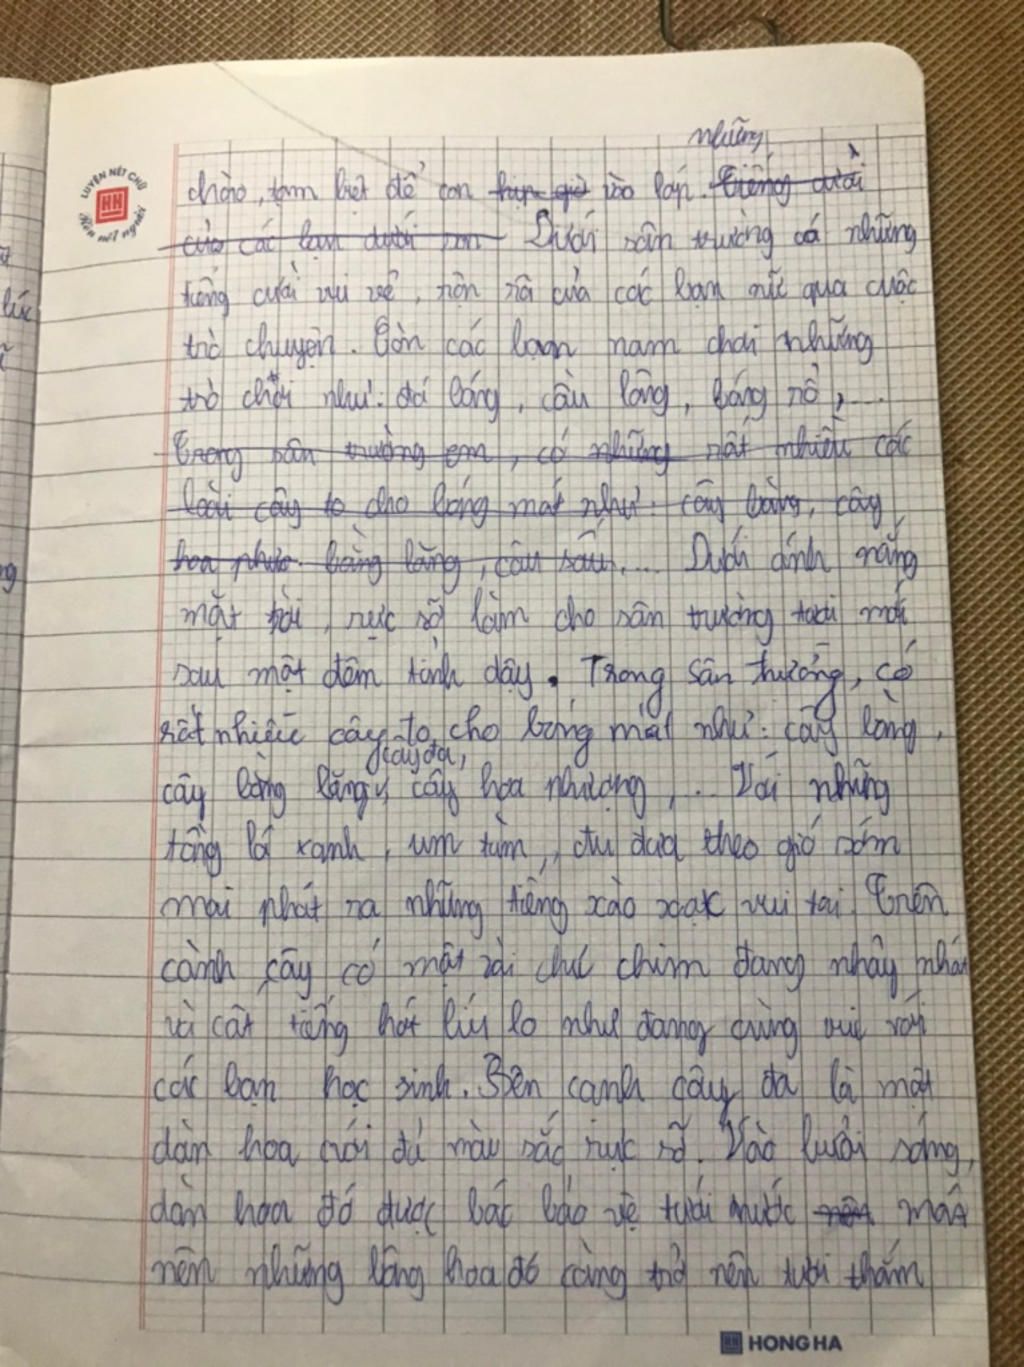 những
LUYỆN NÉT CHỮ
Rèn nết người
chào, tạm biệt để con vào lớp. tiếng cười
của các bạn dưới sân Dưới sân trường có những
tiếng cười vui vẻ, rộn rã của các bạn nữ qua cuộc
trò chuyện. Còn các bạn nam chơi những
trò chơi như: đá bóng, cầu lông, bóng rổ,....
Trong sân trường em, có những rất nhiều các
loài cây to cho bóng mát như: cây bàng, cây
hoa phượ bằng lăng, cây sấu,... Dưới ánh nắng
mặt trời, rực rỡ làm cho sân trường tươi mới
sau một đêm tỉnh dậy. Trong sân trường, có
rất nhiều cây to cho bóng mát như: cây bàng,
cây đa,
cây bằng lăng, cây hoa phượng,... Với những
tầng lá xanh, um tùm, đu đưa theo gió sớm
mai phát ra những tiếng xào xạc vui tai. Trên
cành cây có một vài chú chim đang nhảy nhót
và cất tiếng hót líu lo như đang cùng vui với
các bạn học sinh. Bên cạnh cây đa là một
dàn hoa với đủ màu sắc rực rỡ. Vào buổi sáng,
dàn hoa đó được bác bảo vệ tưới nước mát
nên những bông hoa đó càng trở nên tươi thắm
HH HONG HA